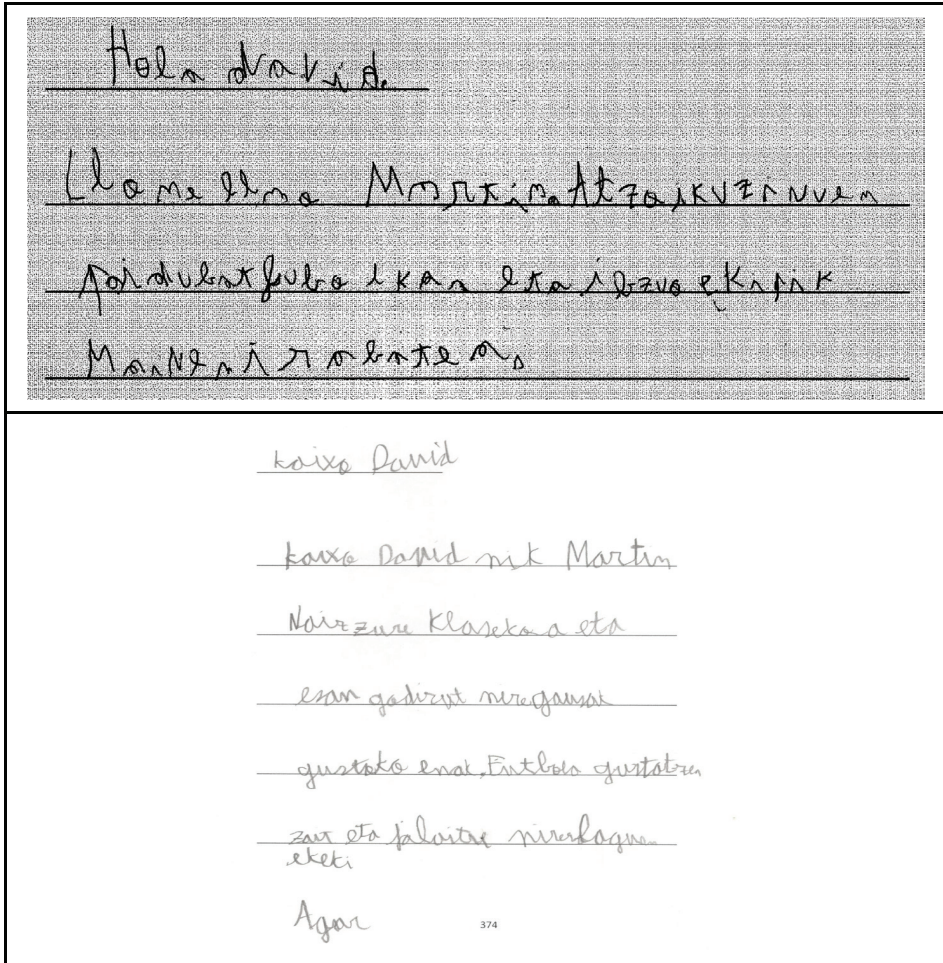 Hola david.
Llo me llmo Martin. Atzo ikuzinuen
paidubat futbo lkan eta i bzuo ekipik
kaixo David
kaixo David nik Martin
Naiz zure klaseko a eta
esan godizut nire gausak
gustoko enak. Futbola gustatzen
zait eta jolaitze nire lagun
ekeki
Agur
374